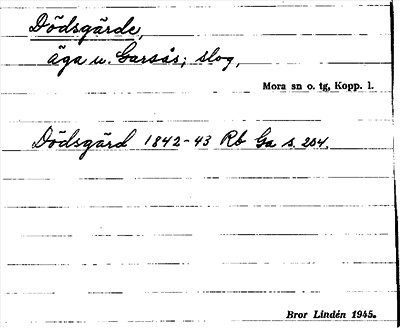 Dödsgärde,
äga u. Garsås; slog,
Mora sn o. tg, Kopp. l.
Dödsgärd 1842-43 Rb Ga s. 204.
Bror Lindén 1945.